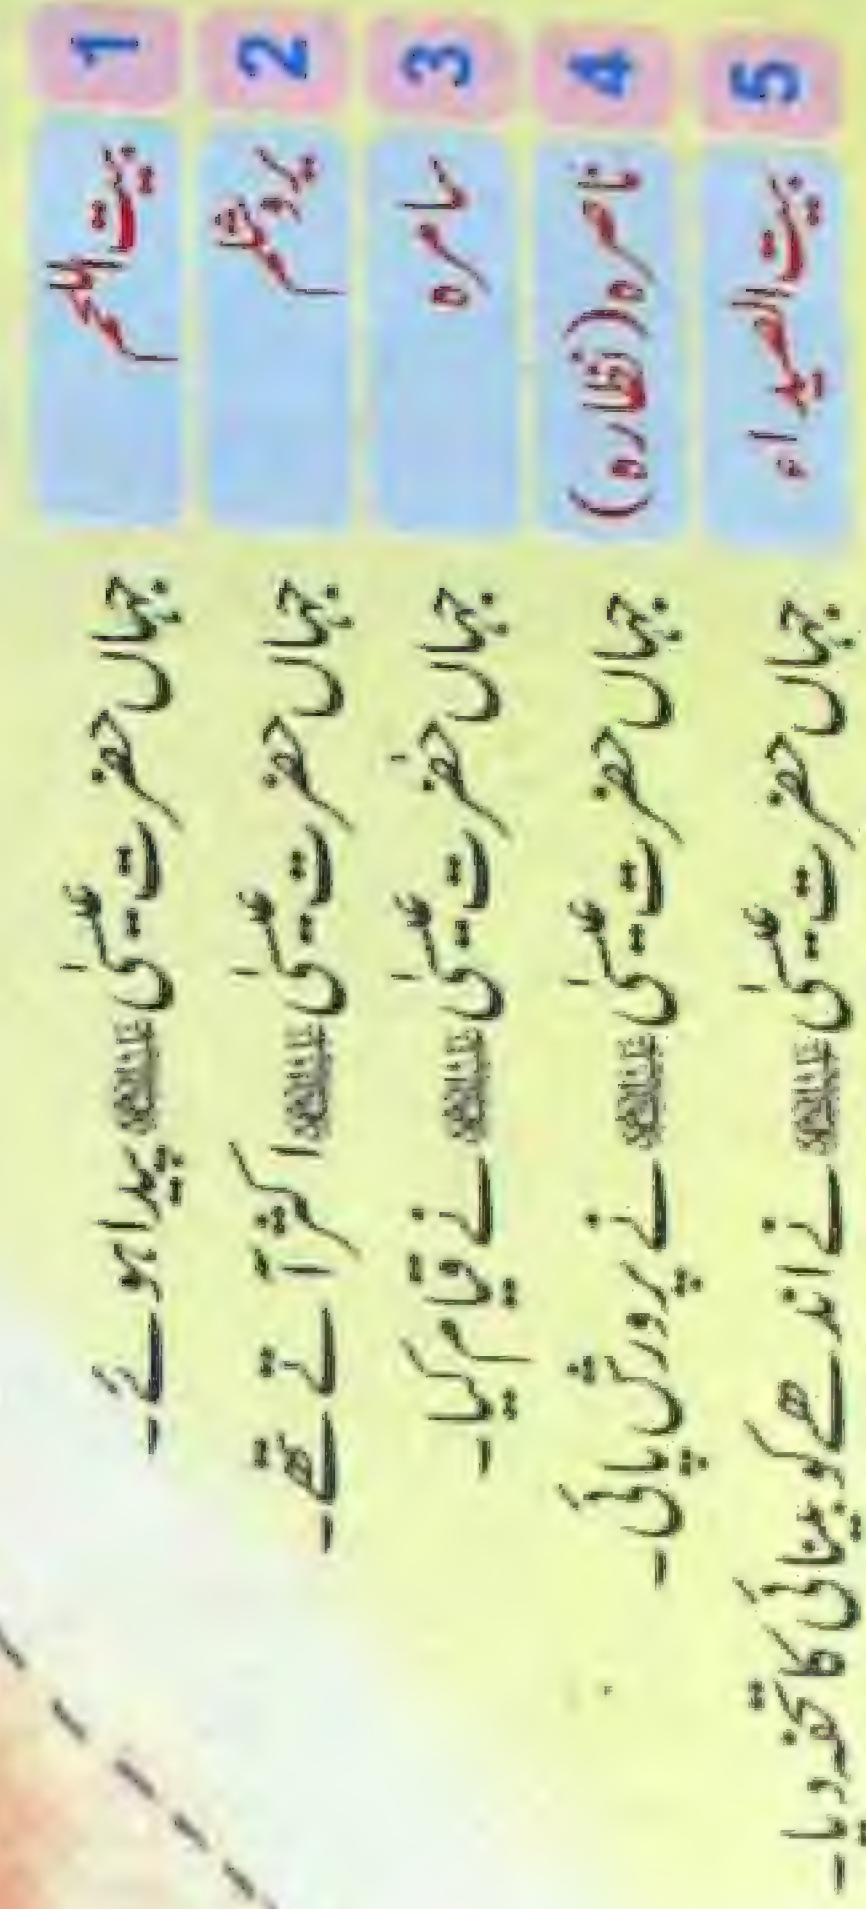 1 بیت اللحم جہاں حضرت عیسیٰ علیہ السلام پیدا ہوئے۔
2 یروشلم جہاں حضرت عیسیٰ علیہ السلام اکثر آتے تھے۔
3 سامرہ جہاں حضرت عیسیٰ علیہ السلام نے قیام کیا۔
4 ناصرہ (نظارہ) جہاں حضرت عیسیٰ علیہ السلام نے پرورش پائی۔
5 بیت الصیداء جہاں حضرت عیسیٰ علیہ السلام نے اندھے کو بینائی کا تحفہ دیا۔